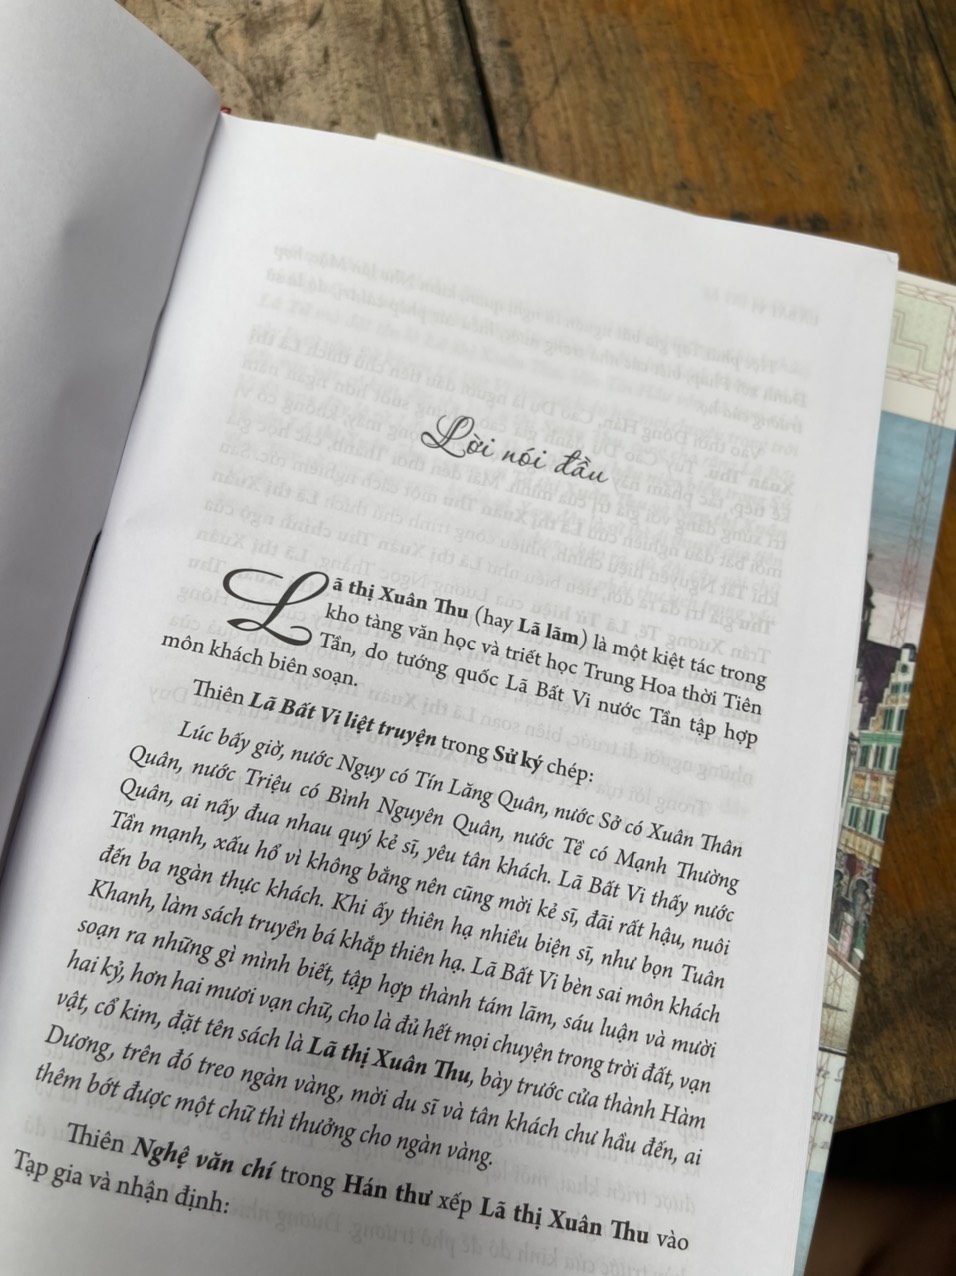 Lời nói đầu
Lã thị Xuân Thu (hay Lã lãm) là một kiệt tác trong
kho tàng văn học và triết học Trung Hoa thời Tiên
Tần, do tướng quốc Lã Bất Vi nước Tần tập hợp
môn khách biên soạn.
Thiên Lã Bất Vi liệt truyện trong Sử ký chép:
Lúc bấy giờ, nước Ngụy có Tín Lăng Quân, nước Sở có Xuân Thân
Quân, nước Triệu có Bình Nguyên Quân, nước Tề có Mạnh Thường
Quân, ai nấy đua nhau quý kẻ sĩ, yêu tân khách. Lã Bất Vi thấy nước
Tần mạnh, xấu hổ vì không bằng nên cũng mời kẻ sĩ, đãi rất hậu, nuôi
đến ba ngàn thực khách. Khi ấy thiên hạ nhiều biện sĩ, như bọn Tuân
Khanh, làm sách truyền bá khắp thiên hạ. Lã Bất Vi bèn sai môn khách
soạn ra những gì mình biết, tập hợp thành tám lãm, sáu luận và mười
hai kỷ, hơn hai mươi vạn chữ, cho là đủ hết mọi chuyện trong trời đất, vạn
vật, cổ kim, đặt tên sách là Lã thị Xuân Thu, bày trước cửa thành Hàm
Dương, trên đó treo ngàn vàng, mời du sĩ và tân khách chư hầu đến, ai
thêm bớt được một chữ thì thưởng cho ngàn vàng.
Thiên Nghệ văn chí trong Hán thư xếp Lã thị Xuân Thu vào
Tạp gia và nhận định: